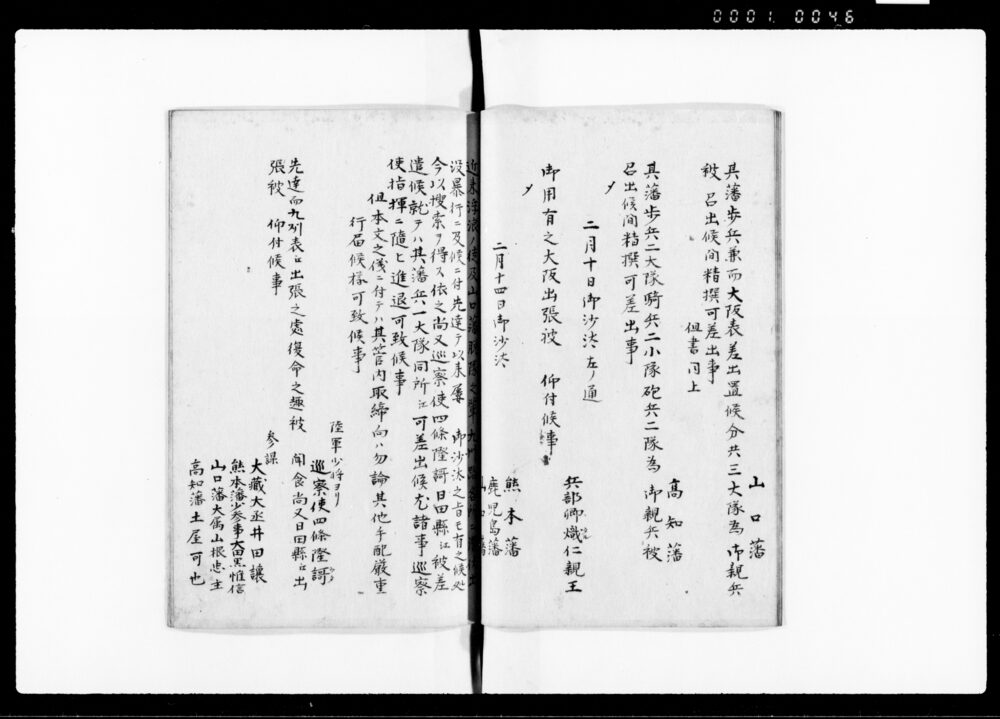 0001 0046
山口藩
其藩歩兵兼而大阪表差出置候分共三大隊為 御親兵
被 召出候間精撰可差出事
但書同上
高知藩
其藩歩兵二大隊騎兵二小隊砲兵二隊為 御親兵被
召出候間精撰可差出事
二月十日御沙汰左ノ通
兵部卿熾仁親王
御用有之大阪出張被 仰付候事
二月十四日御沙汰
熊本藩
鹿児島藩
山口藩
近来浮浪ノ徒及山口藩脱隊之
没暴行ニ及候ニ付先達テ以来屢 御沙汰之旨モ有之候処
今以搜索ヲ得ス依之尚又巡察使四條隆謌日田縣江被差
遣候就テハ其藩兵一大隊同所江可差出候尤諸事巡察
使指揮ニ隨ヒ進退可致候事
但本文之儀ニ付テハ其管内取締向ハ勿論其他手配厳重
行届候様可致候事
陸軍少将ヨリ
巡察使四條隆謌
先達而九州表江出張之處復命之趣被 聞食尚又日田縣江出
張被 仰付候事
参謀
大藏大丞井田讓
熊本藩少参事古荘惟信
山口藩大属山根忠主
高知藩土屋可也